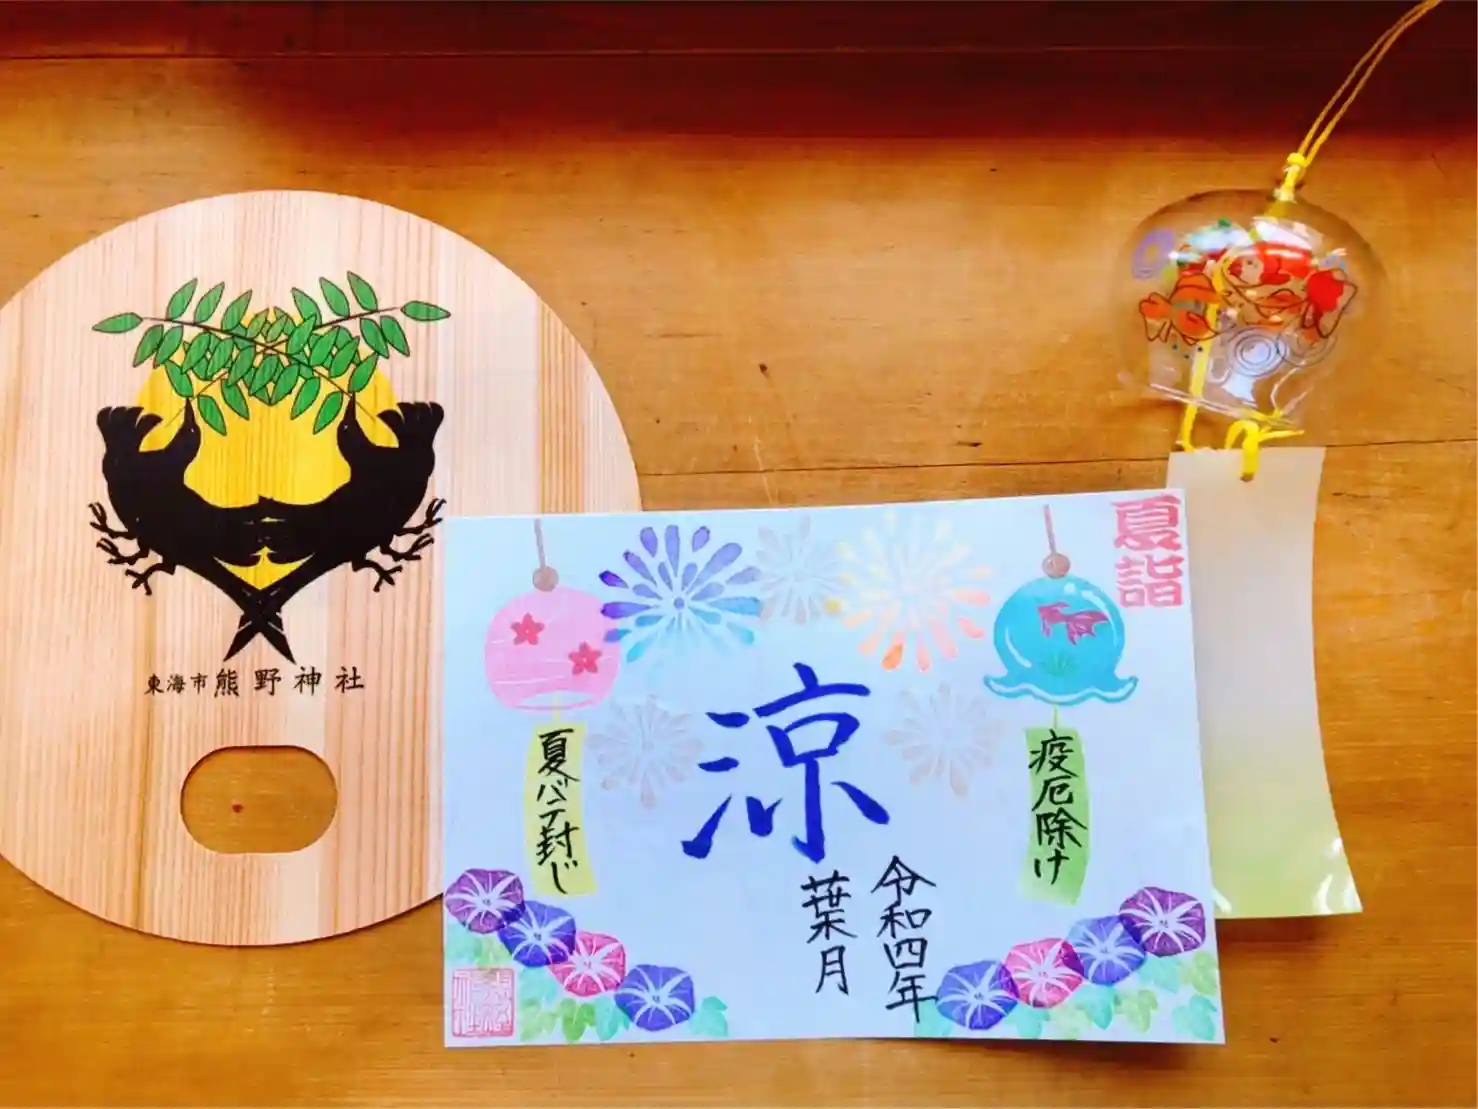 東海市熊野神社
夏詣
涼
疫厄除け
夏バテ封じ
令和四年
葉月